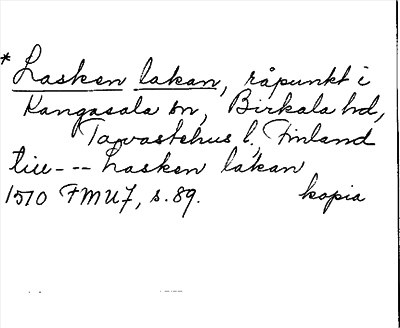 * Lasken lakan, råpunkt i
Kangasala sn, Birkala hd,
Tavastehus l, Finland
till --- Lasken lakan
1570 FMU 7, s. 89. kopia